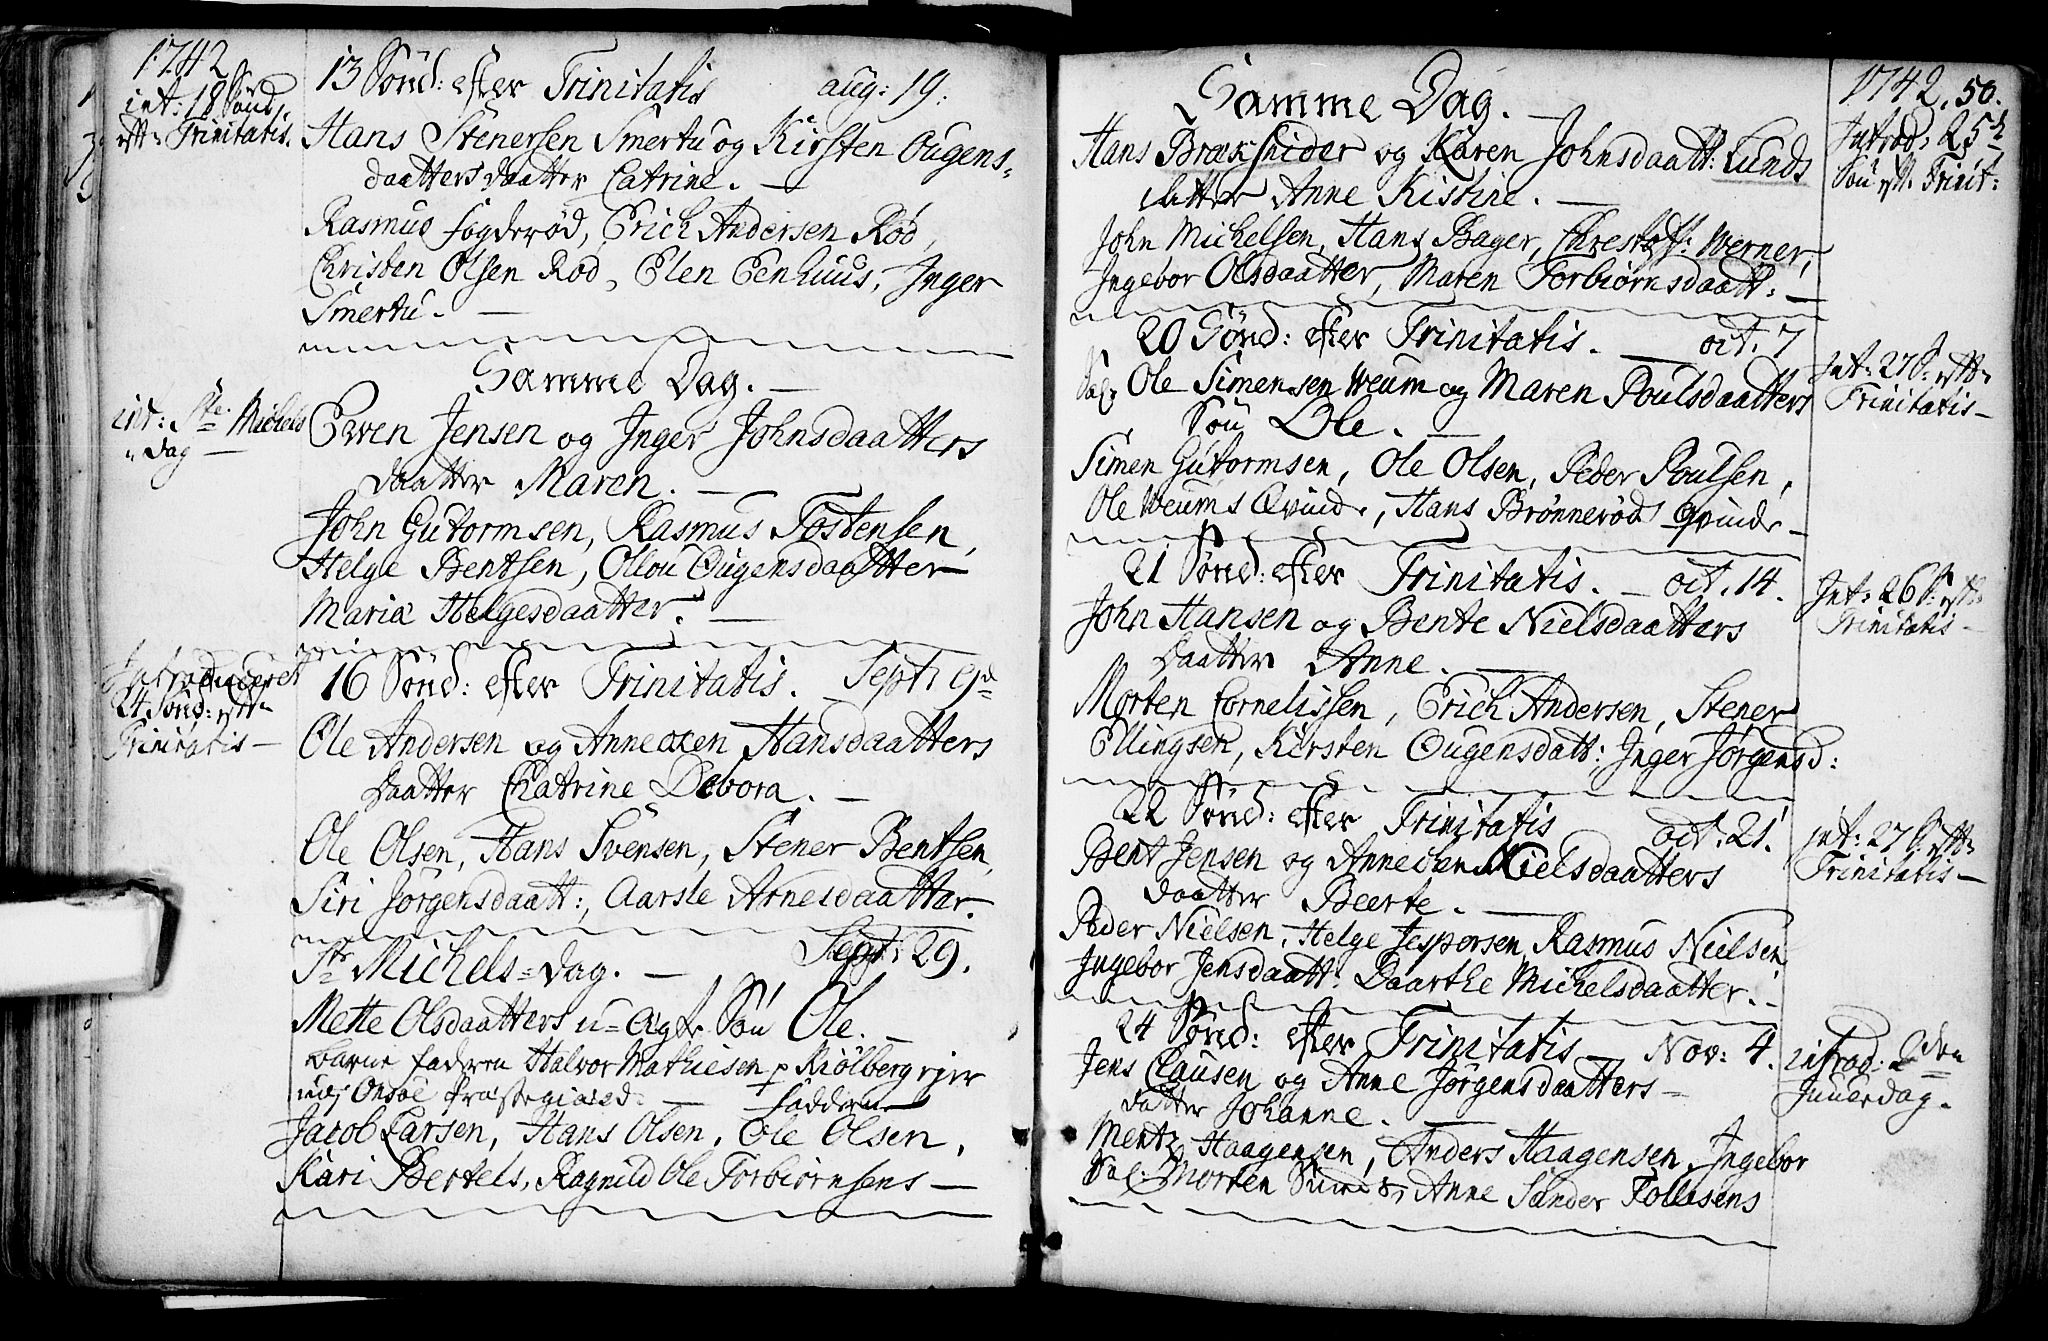 1742
int: 18 Sönd.
eft: Trinitatis.
13 Sönd: efter Trinitatis aug: 19.
Hans Stenersen Smertu og Kirsten Ougens=
daatters daatter Catrine. —
Rasmus fogderød, Erich Andersen Rød,
Christen Olsen Rød, Elen Eenhuus, Inger
Smertu. —
Samme Dag. —
int: Ste Michels
dag —
Even Jensen og Inger Johnsdaatters
daatter Maren. —
John Gutormsen, Rasmus Tostensen,
Helge Bentsen, Ollou Ougensdaatter
Maria Helgesdaatter. —
Introduceret
24 Sönd: eft:
Trinitatis —
16 Sönd: efter Trinitatis. Sept: 9d
Ole Andersen og Anneken Hansdaatters
daatter Chatrine Debora. —
Ole Olsen, Hans Svensen, Stener Bentsen,
Siri Jørgensdaatt:, Aarsle Arnesdaatter.
St Michels=dag. — Sept: 29.
Mette Olsdaatters u=ægte Sön Ole. —
barne faderen Halvor Mathiesen p Kiölberg eier
udj Onsöe præstegield. — faddere
Jacob Larsen, Hans Olsen, Ole Olsen,
Kari Bertels, Ragnild Ole Torbiørnsens —
1742. 50.
Samme Dag. —
Introd: 25de
Sön eft: Trinit:
Hans Bræksnider og Karen Johnsdaatt: Lunds
datter Anne Kistine. —
John Michelsen, Hans Bager, Chrestoff: Werner,
Ingebor Olsdaatter, Maren Torbiørnsdaatt: —
20 Sönd: efter Trinitatis. — oct. 7
Int: 27 S: eft:
Trinitatis —
Sal. Ole Simensen Weum og Maren Poulsdaatters
Sön Ole. —
Simen Gutormsen, Ole Olsen, Peder Poulsen,
Ole Weums Qvinde, Hans Brønnerøds qvinde —
21 Sönd: efter Trinitatis. — oct. 14.
Int: 26 S: eft:
Trinitatis —
John Hansen og Bente Nielsdaatters
daatter Anne. —
Morten Cornelissen, Erich Andersen, Stener
Ellingsen, Kirsten Ougensdatt: Inger Jørgensd:
22 Sönd: efter Trinitatis oct. 21.
int: 27 S. eft:
Trinitatis —
Bent Jensen og Annechen Nielsdaatters
daatter Beerte. —
Peder Nielsen, Helge Jespersen, Rasmus Nielsen
Ingebor Jensdaatt: Daarthe Michelsdaatter. —
24 Sönd: efter Trinitatis — Nov: 4.
introd: 2den
Juuledag.
Jens Clausen og Anne Jørgensdaatters —
datter Johanne. —
Mentz Haagensen, Anders Haagensen, Ingebor
Sal: Morten Anne Sander Tollesens